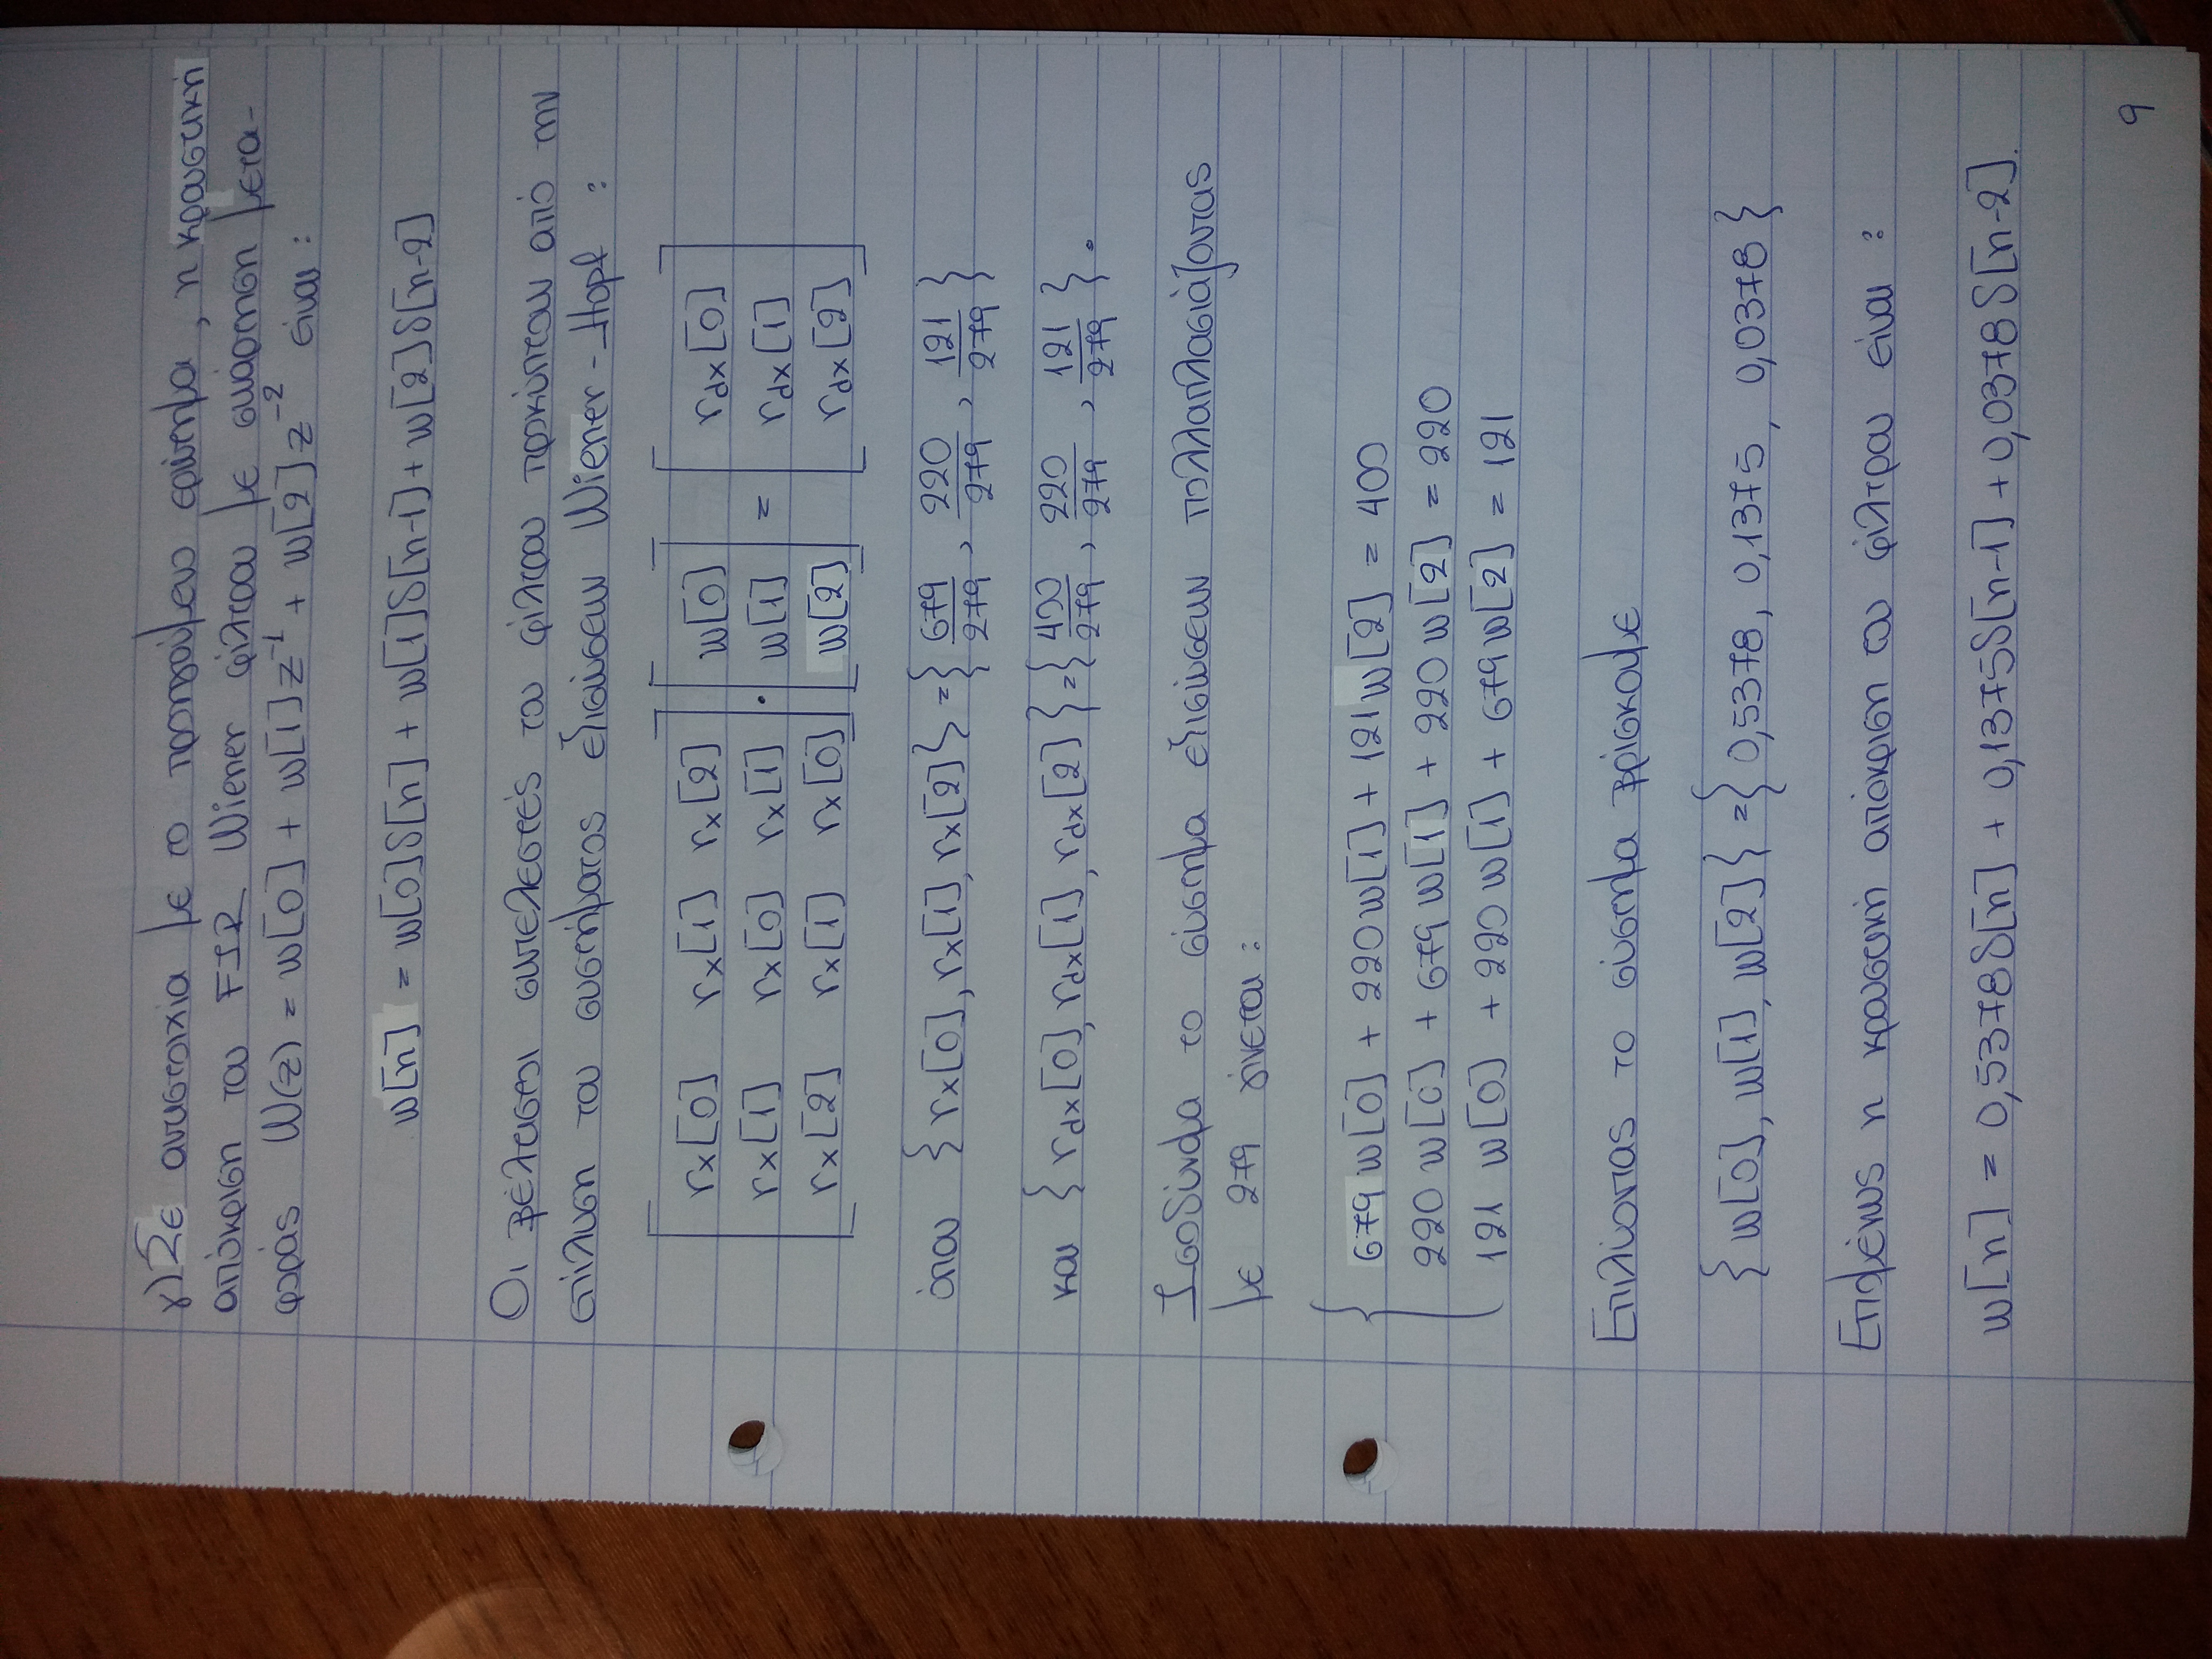 γ) Σε αντιστοιχία με το προηγούμενο ερώτημα, η κρουστική
απόκριση του FIR Wiener φίλτρου με συνάρτηση μετα-
φοράς W(z) = w[0] + w[1]z⁻¹ + w[2]z⁻² είναι :
w[n] = w[0]δ[n] + w[1]δ[n-1] + w[2]δ[n-2]
Οι βέλτιστοι συντελεστές του φίλτρου προκύπτουν από την
επίλυση του συστήματος εξισώσεων Wiener - Hopf :
[ rx[0] rx[1] rx[2] ] [ w[0] ] [ rdx[0] ]
[ rx[1] rx[0] rx[1] ] · [ w[1] ] = [ rdx[1] ]
[ rx[2] rx[1] rx[0] ] [ w[2] ] [ rdx[2] ]
όπου { rx[0], rx[1], rx[2] } = { 679/279 , 220/279 , 121/279 }
και { rdx[0], rdx[1], rdx[2] } = { 400/279 , 220/279 , 121/279 } .
Ισοδύναμα το σύστημα εξισώσεων πολλαπλασιάζοντας
με 279 γίνεται :
679 w[0] + 220 w[1] + 121 w[2] = 400
220 w[0] + 679 w[1] + 220 w[2] = 220
121 w[0] + 220 w[1] + 679 w[2] = 121
Επιλύοντας το σύστημα βρίσκουμε
{ w[0], w[1], w[2] } = { 0,5378, 0,1375, 0,0378 }
Επομένως η κρουστική απόκριση του φίλτρου είναι :
w[n] = 0,5378δ[n] + 0,1375δ[n-1] + 0,0378δ[n-2].
9